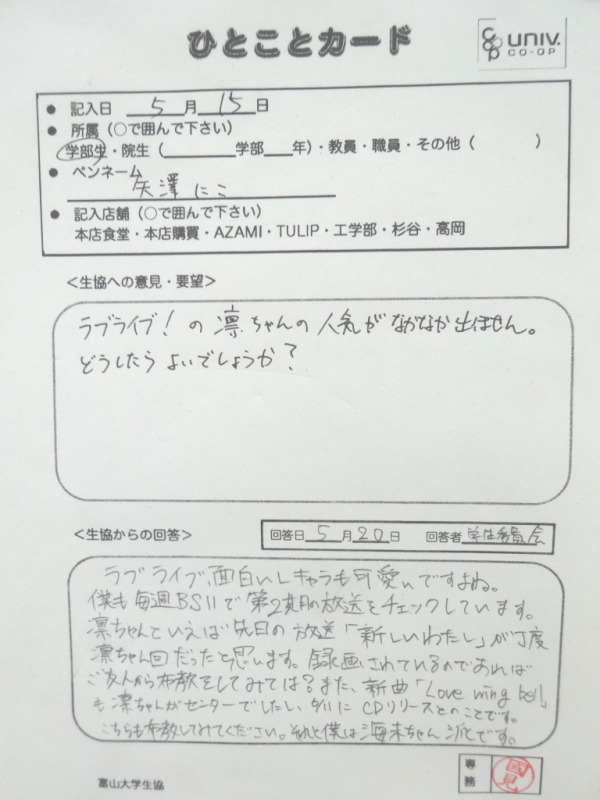 ひとことカード
univ.
CO-OP
● 記入日 5月15日
● 所属（○で囲んで下さい）
学部生・院生（ 学部 年）・教員・職員・その他（ ）
● ペンネーム
矢澤にこ
● 記入店舗（○で囲んで下さい）
本店食堂・本店購買・AZAMI・TULIP・工学部・杉谷・高岡
＜生協への意見・要望＞
ラブライブ！の凛ちゃんの人気がなかなか出ません。
どうしたらよいでしょうか？
＜生協からの回答＞
回答日 5月20日 回答者 学生委員会
ラブライブ、面白いしキャラも可愛いですよね。
僕も毎週BS11で第2期の放送をチェックしています。
凛ちゃんといえば先日の放送「新しいわたし」が丁度
凛ちゃん回だったと思います。録画されているのであれば
ご友人から布教をしてみては？また、新曲「Love wing bell」
も凛ちゃんがセンターでしたし、9/11にCDリリースとのことです。
こちらも布教してみてください。それと僕は海未ちゃん派です。
専務
國見
富山大学生協